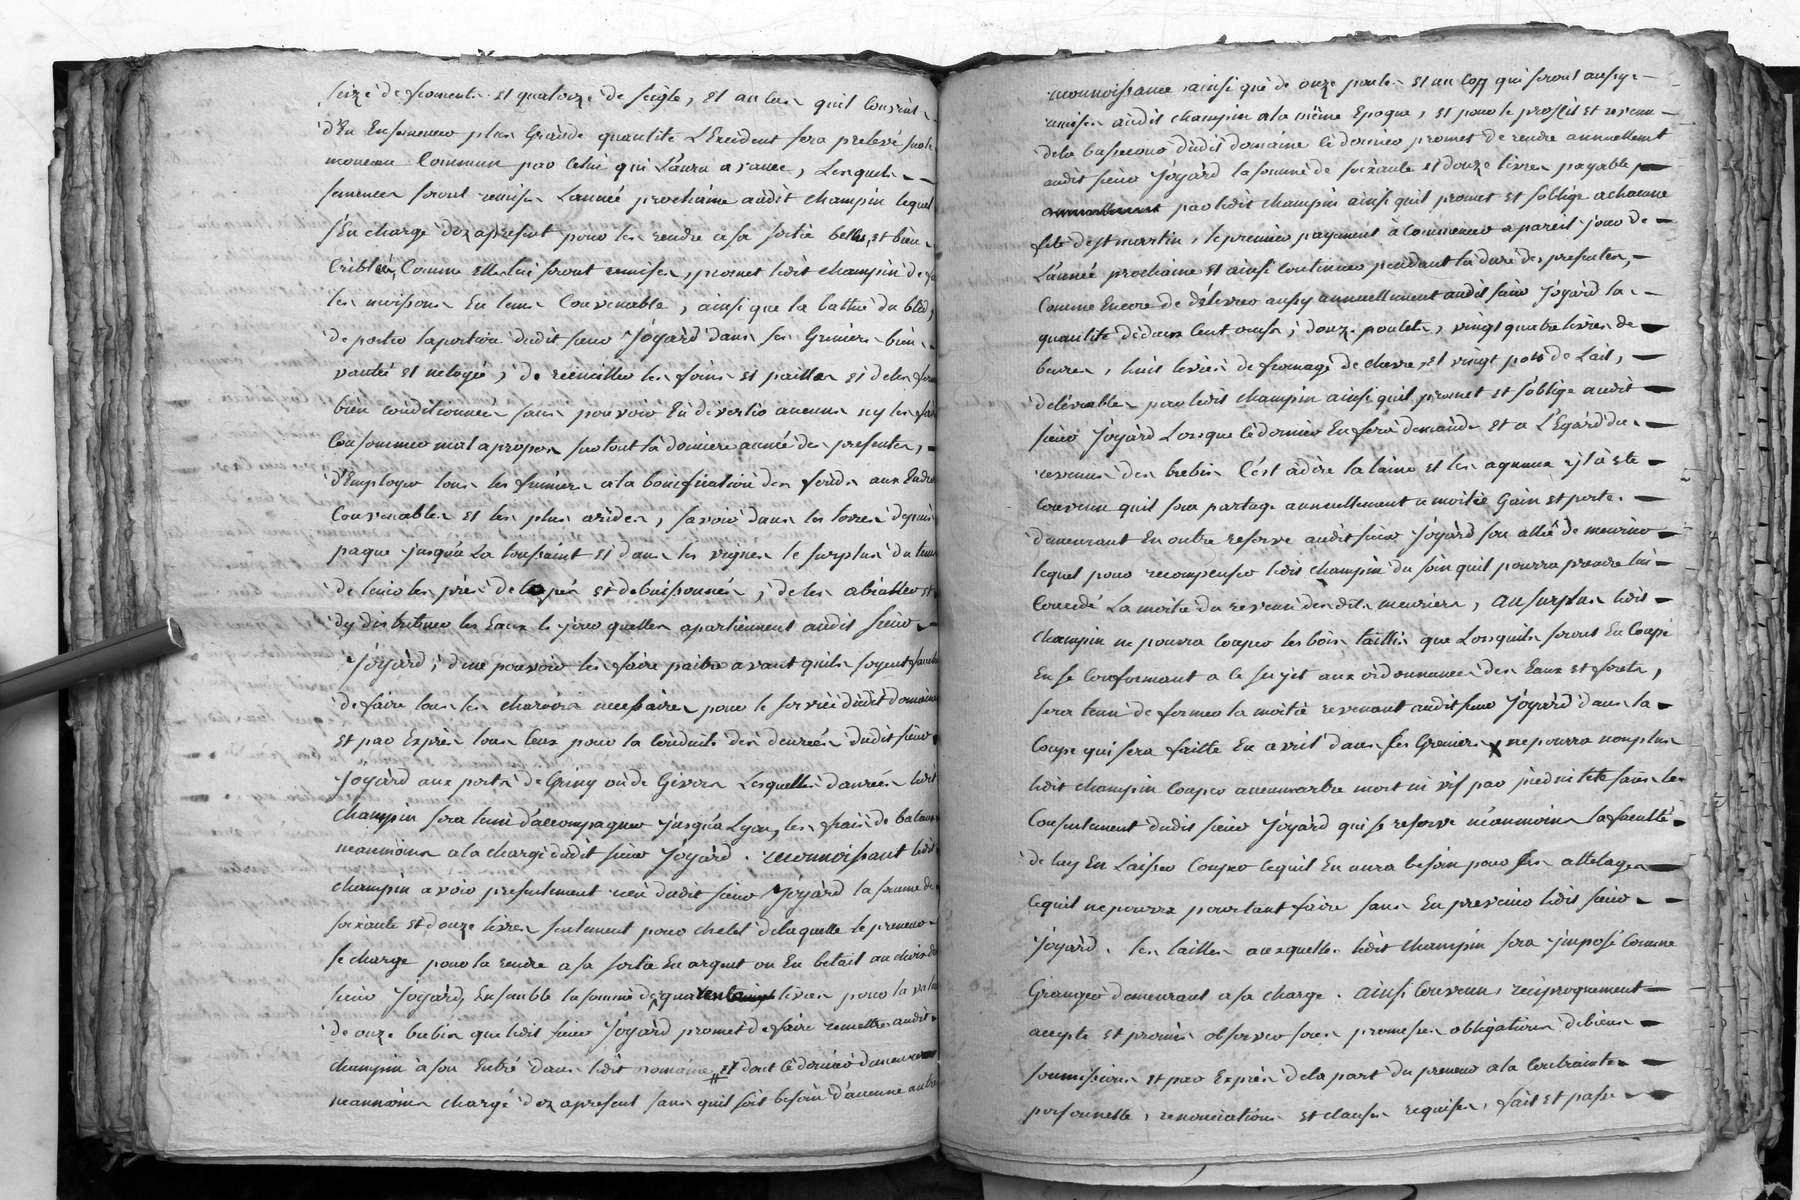 seize de froment et quatorze de seigle, et au cas quil convint
d'En Ensemencer plus Grande quantité L'Excédent sera prelevé sur le
monceau Commun par Celui qui L'aura avancé, Lesquels
semences seront remises L'année prochaine audit champin lequel
s'En charge dez apresent pour les rendre a sa sortie belles, et bien
Criblées, Comme elles lui seront remises, promet ledit champin de fe
les moissons En tems Convenable, ainsi que la battue du bled,
de porter la portion dudit sieur Joyard dans ses Greniers bien
vantée et netoyée, de recueiller les foins et pailles et de les
bien conditionnés sans pouvoir En divertir aucuns ny les faire
Consommer mal apropos surtout la derniere année des presentes,
d'Employer tous les fumiers a la bonification des fonds aux Endr
Convenables et les plus arides, savoir dans les terres depuis
paque jusqu'a La toussaint et dans les vignes le surplus du tems
de tenir les prés et debuissonnés, de les abreuver et
d'y distribuer les Eaux le jour quelles apartiennent audit sieur
Joyard, de ne pouvoir les faire paitre avant quils soyent fauchés
de faire tous les charrois necessaires pour le service dudit domaine
et par Exprès tous Ceux pour la Conduite des denrées dudit sieur
Joyard aux ports de Grigny ou de Givors Lesquelles denrées ledit
champin sera tenu d'accompagner jusqu'a Lyon, les frais de bateau
neanmoins a la charge dudit sieur Joyard. reconnoissant ledit
champin avoir presentement reçu dudit sieur Joyard la somme de
soixante et douze livres seulement pour chetel de laquelle le preneur
se charge pour la rendre a sa sortie En argent ou En betail au choix du
sieur Joyard, Ensemble la somme de quarente livres pour la valeur
de onze brebis que ledit sieur Joyard promet de faire remettre audit
champin à son Entrée dans ledit domaine et dont le dernier demeurera
neanmoins chargé dez apresent sans quil soit besoin d'aucune autre
reconnoissance ainsi que de onze poules et un Coq qui seront aussy
remises audit champin a la même Epoque, et pour le proffit et revenu
de la bassecour dudit domaine le dernier promet de rendre annuellement
audit sieur Joyard la somme de soixante et douze livres payable
annuellement par ledit champin ainsi quil promet et s'oblige a chacune
fete de st martin, le premier payement à Commencer a pareil jour de
L'année prochaine et ainsi Continuer pendant la durée des presentes,
Comme Encore de délivrer aussy annuellement audit sieur Joyard la
quantité de deux Cent œufs, douze poulets, vingt quatre livres de
beurre, huit livres de fromage de chevre, et vingt pots de Lait,
délivrables par ledit champin ainsi quil promet et s'oblige audit
sieur Joyard Lorsque le dernier En fera demande et a L'Egard du
revenu des brebis C'est adire la laine et les agneaux il a été
Convenu quil sera partagé annuellement a moitié Gain et perte
demeurant En outre reservé audit sieur Joyard son allée de meurier
lequel pour recompenser ledit champin du soin quil pourra prendre lui
Concede La moitié du revenu desdits meuriers, au surplus ledit
champin ne pourra Couper les bois taillis que Lorsquils seront En Coupe
En se Conformant a Ce sujet aux ordonnances des Eaux et forets,
sera tenu de fermer la moitié revenant audit sieur Joyard dans la
Coupe qui sera faitte En avril dans ses Greniers ne pourra non plus
ledit champin Couper aucun arbre mort ni vif par pied ni tete sans le
Consentement dudit sieur Joyard qui se reserve néanmoins la faculté
de luy En Laisser Couper lequil En aura besoin pour ses attelages
Cequil ne pourra pourtant faire sans En prevenir ledit sieur
Joyard. les tailles auxquelles ledit champin sera imposé Comme
Granger demeurant a sa charge. ainsi Convenu, réciproquement
accepté et promis observer sous promesses obligations de biens
soumissions et par Exprès de la part du preneur a la Contrainte
personnelle, renonciations et clauses requises, fait et passé